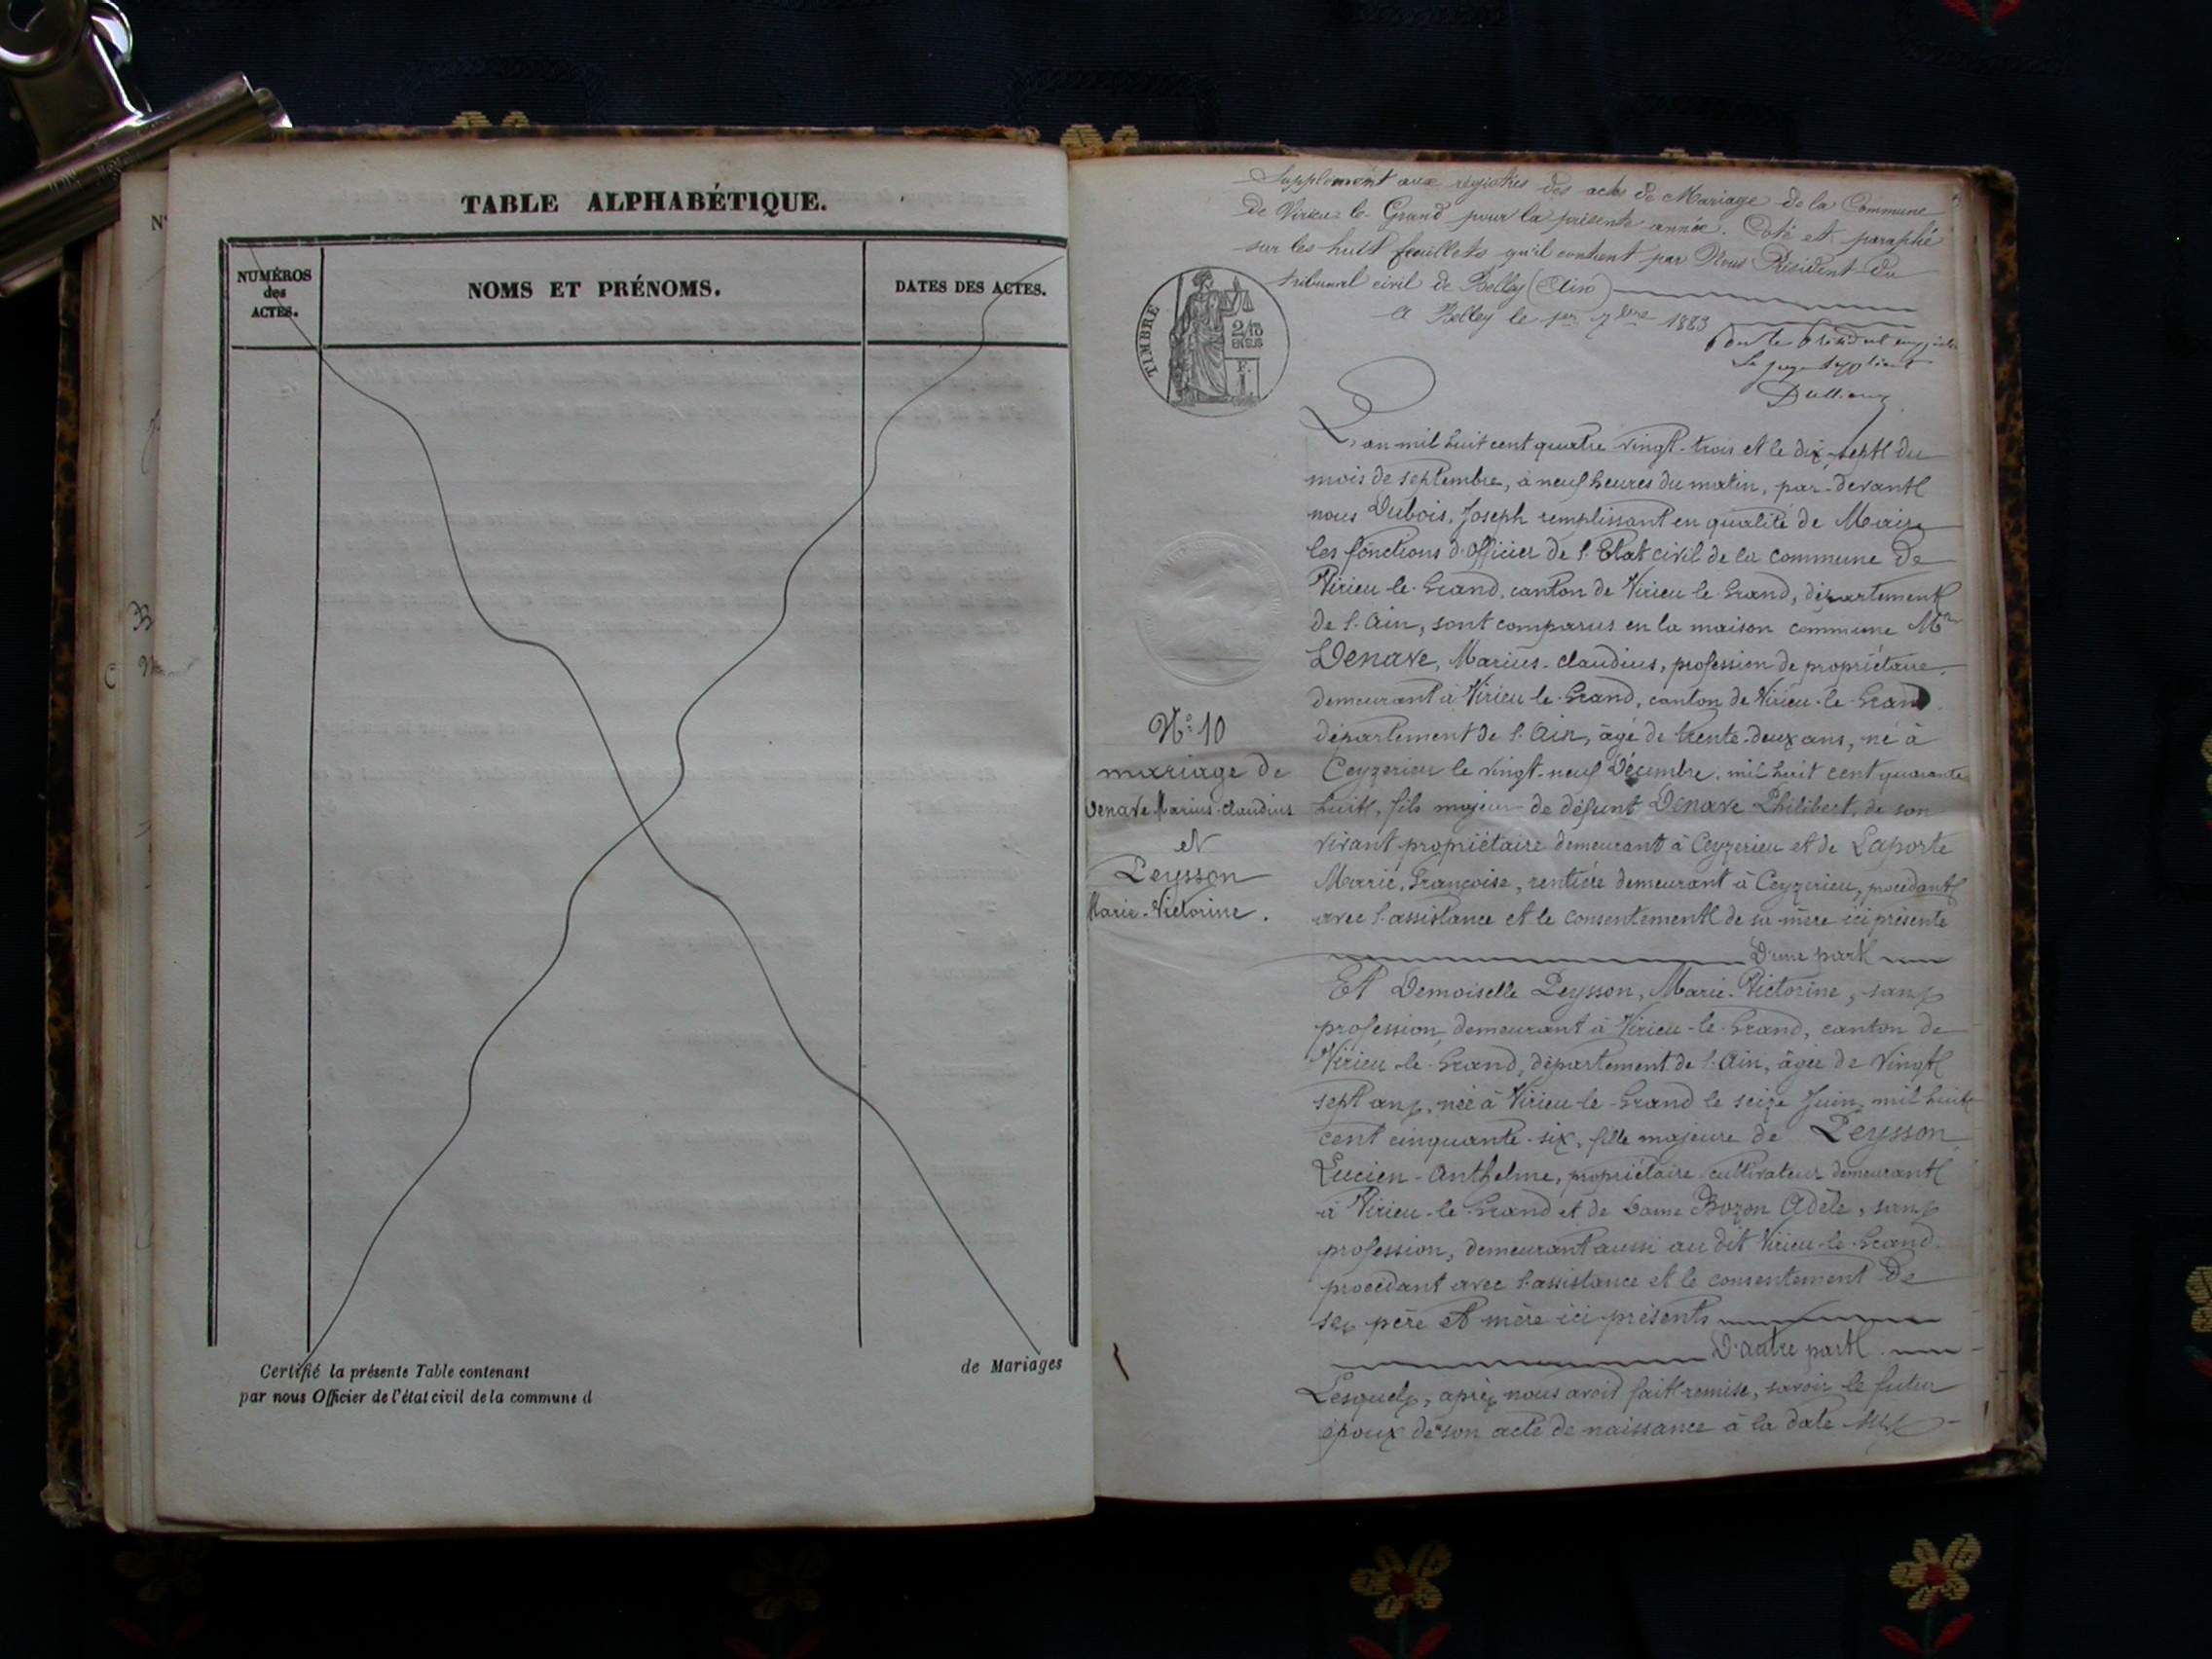 TABLE ALPHABÉTIQUE.
NUMÉROS
des
ACTES.
NOMS ET PRÉNOMS.
DATES DES ACTES.
Certifié la présente Table contenant
de Mariages
par nous Officier de l'état civil de la commune d
Supplément aux registres des actes de Mariage de la Commune
de Virieu-le-Grand pour la présente année. Coté et paraphé
sur les huit feuillets qu'il contient par Nous Président du
tribunal civil de Belley (Ain)
A Belley le 1er 7bre 1883
Le juge suppléant
TIMBRE
2/10
EN SUS
F.
1.
L'an mil huit cent quatre vingt-trois et le dix-sept du
mois de septembre, à neuf heures du matin, par-devant
nous Dubois, Joseph remplissant en qualité de Maire
les fonctions d'officier de l'Etat civil de la commune de
Virieu-le-Grand, canton de Virieu-le-Grand, département
de l'Ain, sont comparus en la maison commune Mr
Denave, Marius-Claudius, profession de propriétaire
demeurant à Virieu-le-Grand, canton de Virieu-le-Grand
département de l'Ain, âgé de trente-deux ans, né à
Ceyzerieu le vingt-neuf Décembre, mil huit cent quarante
huit, fils majeur de défunt Denave Philibert, de son
vivant propriétaire demeurant à Ceyzerieu et de Laporte
Marie, Françoise, rentière demeurant à Ceyzerieu, procédant
avec l'assistance et le consentement de sa mère ici présente
D'une part
N° 10
mariage de
Denave Marius-Claudius
et
Peysson
Marie-Victorine.
Et Demoiselle Peysson, Marie-Victorine, sans
profession, demeurant à Virieu-le-Grand, canton de
Virieu-le-Grand, département de l'Ain, âgée de vingt
sept ans, née à Virieu-le-Grand le seize Juin, mil huit
cent cinquante-six, fille majeure de Peysson
Lucien-Anthelme, propriétaire cultivateur demeurant
à Virieu-le-Grand et de Dame Bozon Adèle, sans
profession, demeurant aussi au dit Virieu-le-Grand
procédant avec l'assistance et le consentement de
ses père et mère ici présents
D'autre part.
Lesquels, après nous avoir fait remise, savoir le futur
époux de son acte de naissance à la date